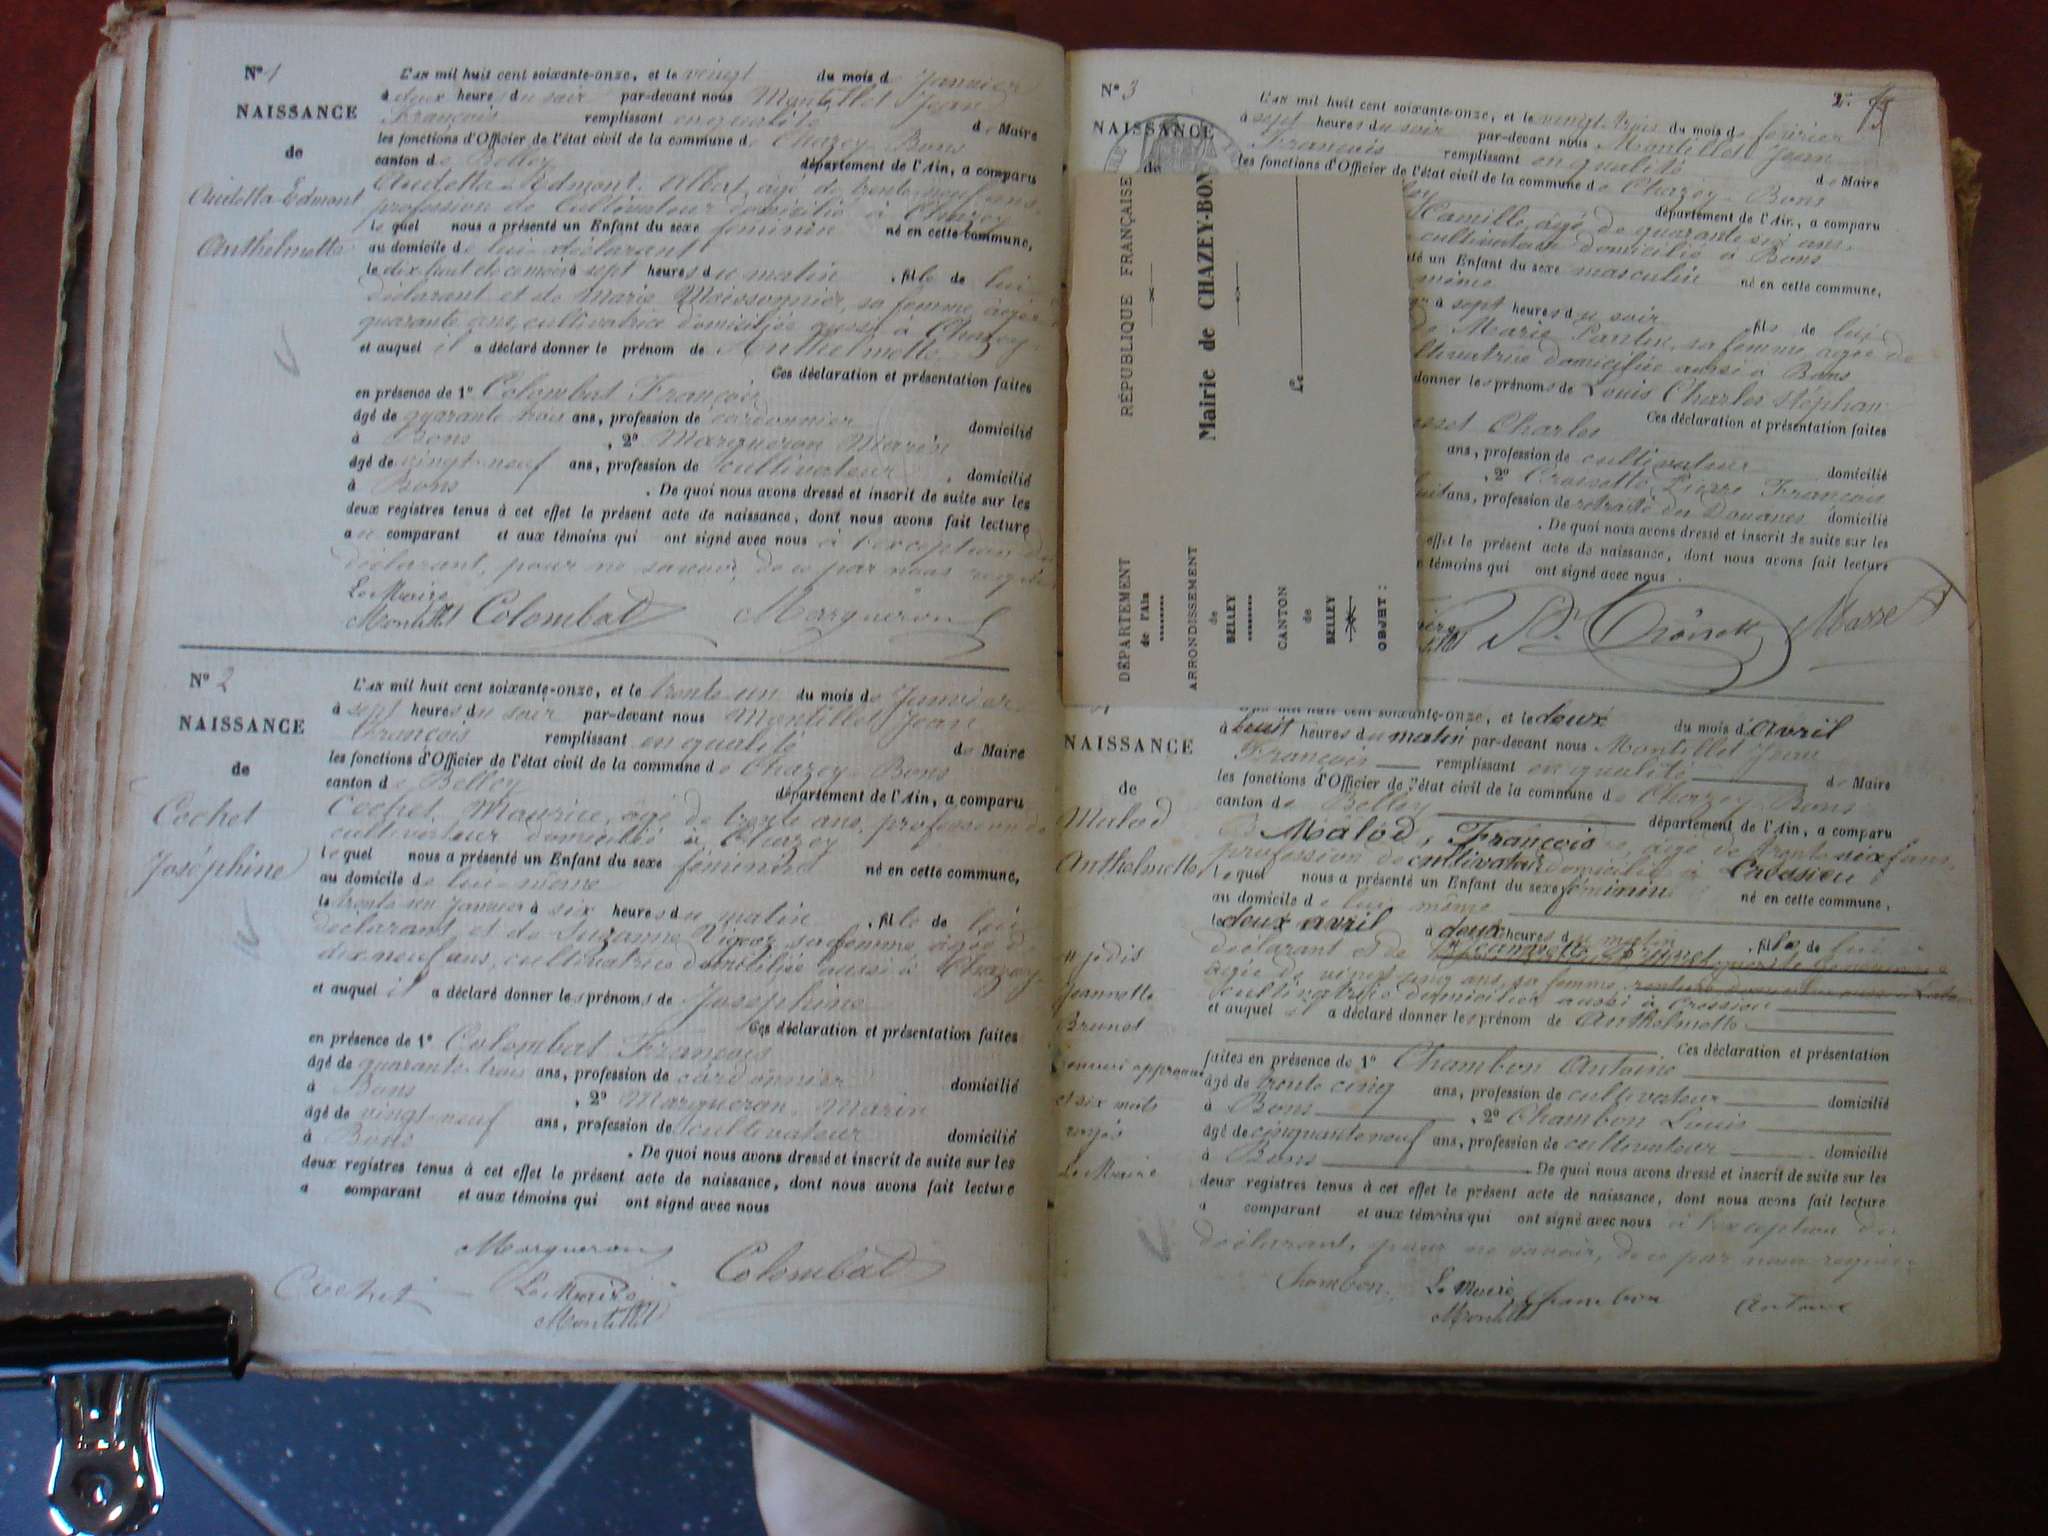 N° 1
NAISSANCE
de
Audetta-Edmont
Anthelmette
L'AN mil huit cent soixante-onze, et le vingt du mois de Janvier
à deux heures du soir par-devant nous Montillet Jean
François remplissant en qualité de Maire
les fonctions d'Officier de l'état civil de la commune de Chazey-Bons
canton de Belley département de l'Ain, a comparu
Audetta-Edmont Albert âgé de trente-neuf ans,
profession de cultivateur domicilié à Chazey
lequel nous a présenté un Enfant du sexe féminin né en cette commune,
au domicile de lui déclarant
le dix huit de ce mois à sept heures du matin, fille de lui
déclarant et de Marie Moissonnier, sa femme, âgée de
quarante ans, cultivatrice domiciliée aussi à Chazey
et auquel il a déclaré donner le prénom de Anthelmette
Ces déclaration et présentation faites
en présence de 1° Colombat François
âgé de quarante trois ans, profession de cordonnier domicilié
à Bons, 2° Marqueron Marin
âgé de vingt-neuf ans, profession de cultivateur, domicilié
à Bons. De quoi nous avons dressé et inscrit de suite sur les
deux registres tenus à cet effet le présent acte de naissance, dont nous avons fait lecture
au comparant et aux témoins qui ont signé avec nous à l'exception du
déclarant, pour ne savoir, de ce par nous requis
Le Maire
Montillet Colombat Marqueron
N° 2
NAISSANCE
de
Cochet
Joséphine
L'AN mil huit cent soixante-onze, et le trente un du mois de Janvier
à sept heures du soir par-devant nous Montillet Jean
François remplissant en qualité de Maire
les fonctions d'Officier de l'état civil de la commune de Chazey-Bons
canton de Belley département de l'Ain, a comparu
Cochet Maurice, âgé de trente ans, profession de
cultivateur domicilié à Chazey
lequel nous a présenté un Enfant du sexe féminin né en cette commune,
au domicile de lui-même
le trente un Janvier à six heures du matin, fille de lui
déclarant et de Suzanne sa femme, âgée de
dix neuf ans, cultivatrice domiciliée aussi à Chazey
et auquel il a déclaré donner les prénoms de Joséphine
Ces déclaration et présentation faites
en présence de 1° Colombat François
âgé de quarante-trois ans, profession de cordonnier domicilié
à Bons, 2° Marqueron Marin
âgé de vingt-neuf ans, profession de cultivateur domicilié
à Bons. De quoi nous avons dressé et inscrit de suite sur les
deux registres tenus à cet effet le présent acte de naissance, dont nous avons fait lecture
a comparant et aux témoins qui ont signé avec nous
Marqueron
Cochet Le Maire Colombat
Montillet
N° 3
NAISSANCE
de
L'AN mil huit cent soixante-onze, et le vingt-trois du mois de février
à sept heures du soir par-devant nous Montillet Jean
François remplissant en qualité de Maire
les fonctions d'Officier de l'état civil de la commune de Chazey-Bons
département de l'Ain, a comparu
Camille, âgé de quarante six ans,
cultivateur domicilié à Bons
un Enfant du sexe masculin né en cette commune,
même
à sept heures du soir fils de lui
de Marie sa femme, âgée de
domiciliée aussi à Bons
donner les prénoms de Louis Charles Stéphan
Ces déclaration et présentation faites
Charles
ans, profession de cultivateur domicilié
, 2° Pierre François
ans, profession de retraité des Douanes domicilié
. De quoi nous avons dressé et inscrit de suite sur les
effet le présent acte de naissance, dont nous avons fait lecture
témoins qui ont signé avec nous.
RÉPUBLIQUE FRANÇAISE
Mairie de CHAZEY-BON
Le
DÉPARTEMENT
de l'Ain
ARRONDISSEMENT
de
BELLEY
CANTON
de
BELLEY
OBJET :
NAISSANCE
de
Malod
Anthelmette
Jeannette
Brunet
renvoi approuvé
et six mots
rayés
Le Maire
mil huit cent soixante-onze, et le deux du mois d'avril
à huit heures du matin par-devant nous Montillet Jean
François remplissant en qualité de Maire
les fonctions d'Officier de l'état civil de la commune de Chazey-Bons
canton de Belley département de l'Ain, a comparu
Malod, François, âgé de trente six ans,
profession de cultivateur domicilié à Crossieu
lequel nous a présenté un Enfant du sexe féminin né en cette commune,
au domicile de lui même
le deux avril à deux heures du matin, fille de lui
déclarant et de
âgée de vingt cinq ans, sa femme,
cultivatrice domiciliée aussi à Crossieu
et auquel il a déclaré donner le prénom de Anthelmette
Ces déclaration et présentation
faites en présence de 1° Chambon Antoine
âgé de trente cinq ans, profession de cultivateur domicilié
à Bons, 2° Chambon Louis
âgé de cinquante neuf ans, profession de cultivateur domicilié
à Bons. De quoi nous avons dressé et inscrit de suite sur les
deux registres tenus à cet effet le présent acte de naissance, dont nous avons fait lecture
a comparant et aux témoins qui ont signé avec nous à l'exception du
déclarant, pour ne savoir, de ce par nous requis
Chambon Le Maire Chambon Antoine
Montillet